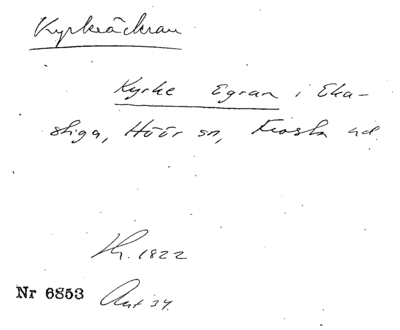 Kyrkeäckran
Kyrke Egran i Eka-
stiga, Höör sn, Frosta hd.
1822
Nr 6853
Ant 34.